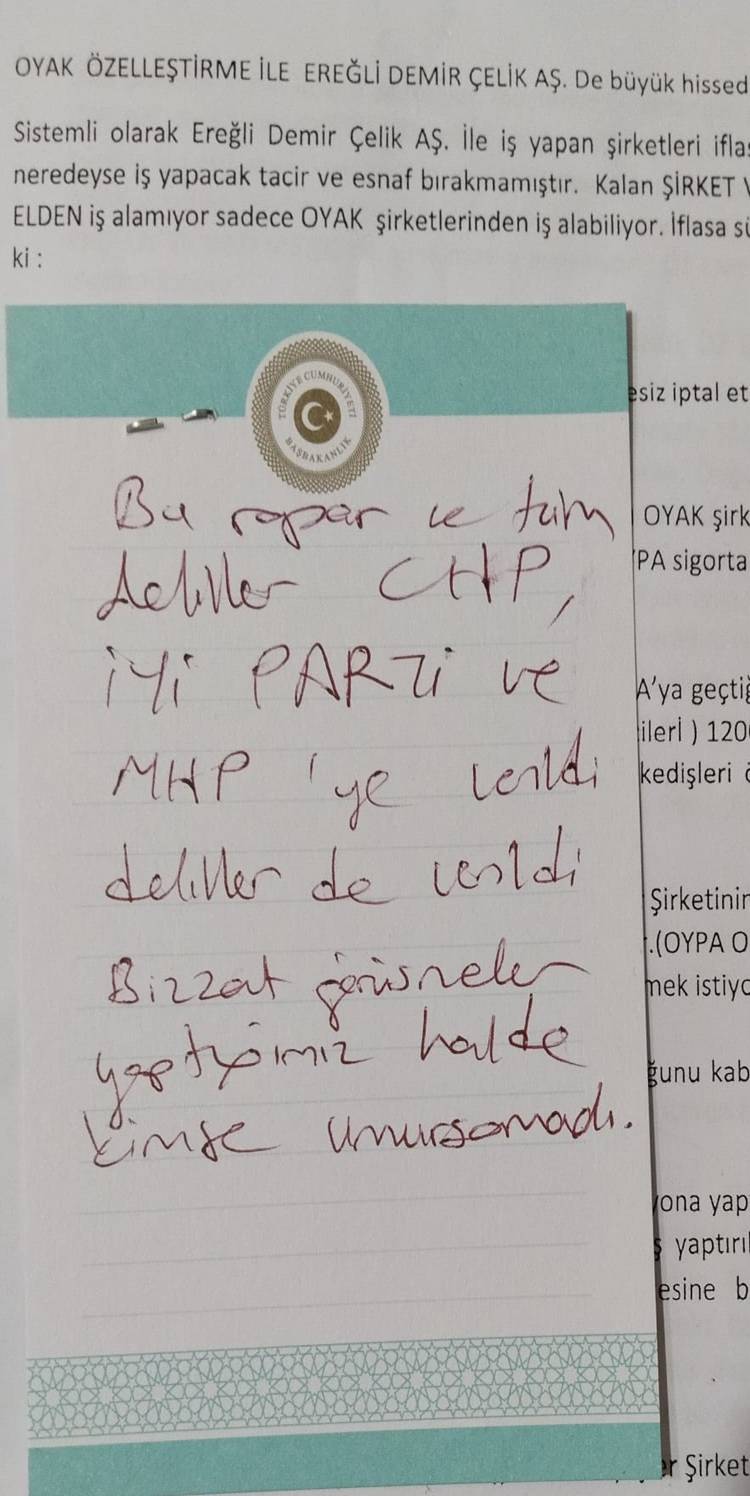 OYAK ÖZELLEŞTİRME İLE EREĞLİ DEMİR ÇELİK AŞ. De büyük hissed
Sistemli olarak Ereğli Demir Çelik AŞ. İle iş yapan şirketleri ifla
neredeyse iş yapacak tacir ve esnaf bırakmamıştır. Kalan ŞİRKET V
ELDEN iş alamıyor sadece OYAK şirketlerinden iş alabiliyor. İflasa sü
ki :
TÜRKİYE CUMHURİYETİ
BAŞBAKANLIK
esiz iptal et
Bu rapar ve tüm
OYAK şirk
deliller CHP,
PA sigorta
İYİ PARTİ ve
A'ya geçtiğ
ileri ) 120
MHP 'ye verildi
kedişleri
deliller de verildi
Şirketinin
.(OYPA O
Bizzat görüşmeler
mek istiyo
yaptığımız halde
ğunu kab
kimse umursamadı.
yona yap
ş yaptırıl
esine b
er Şirket